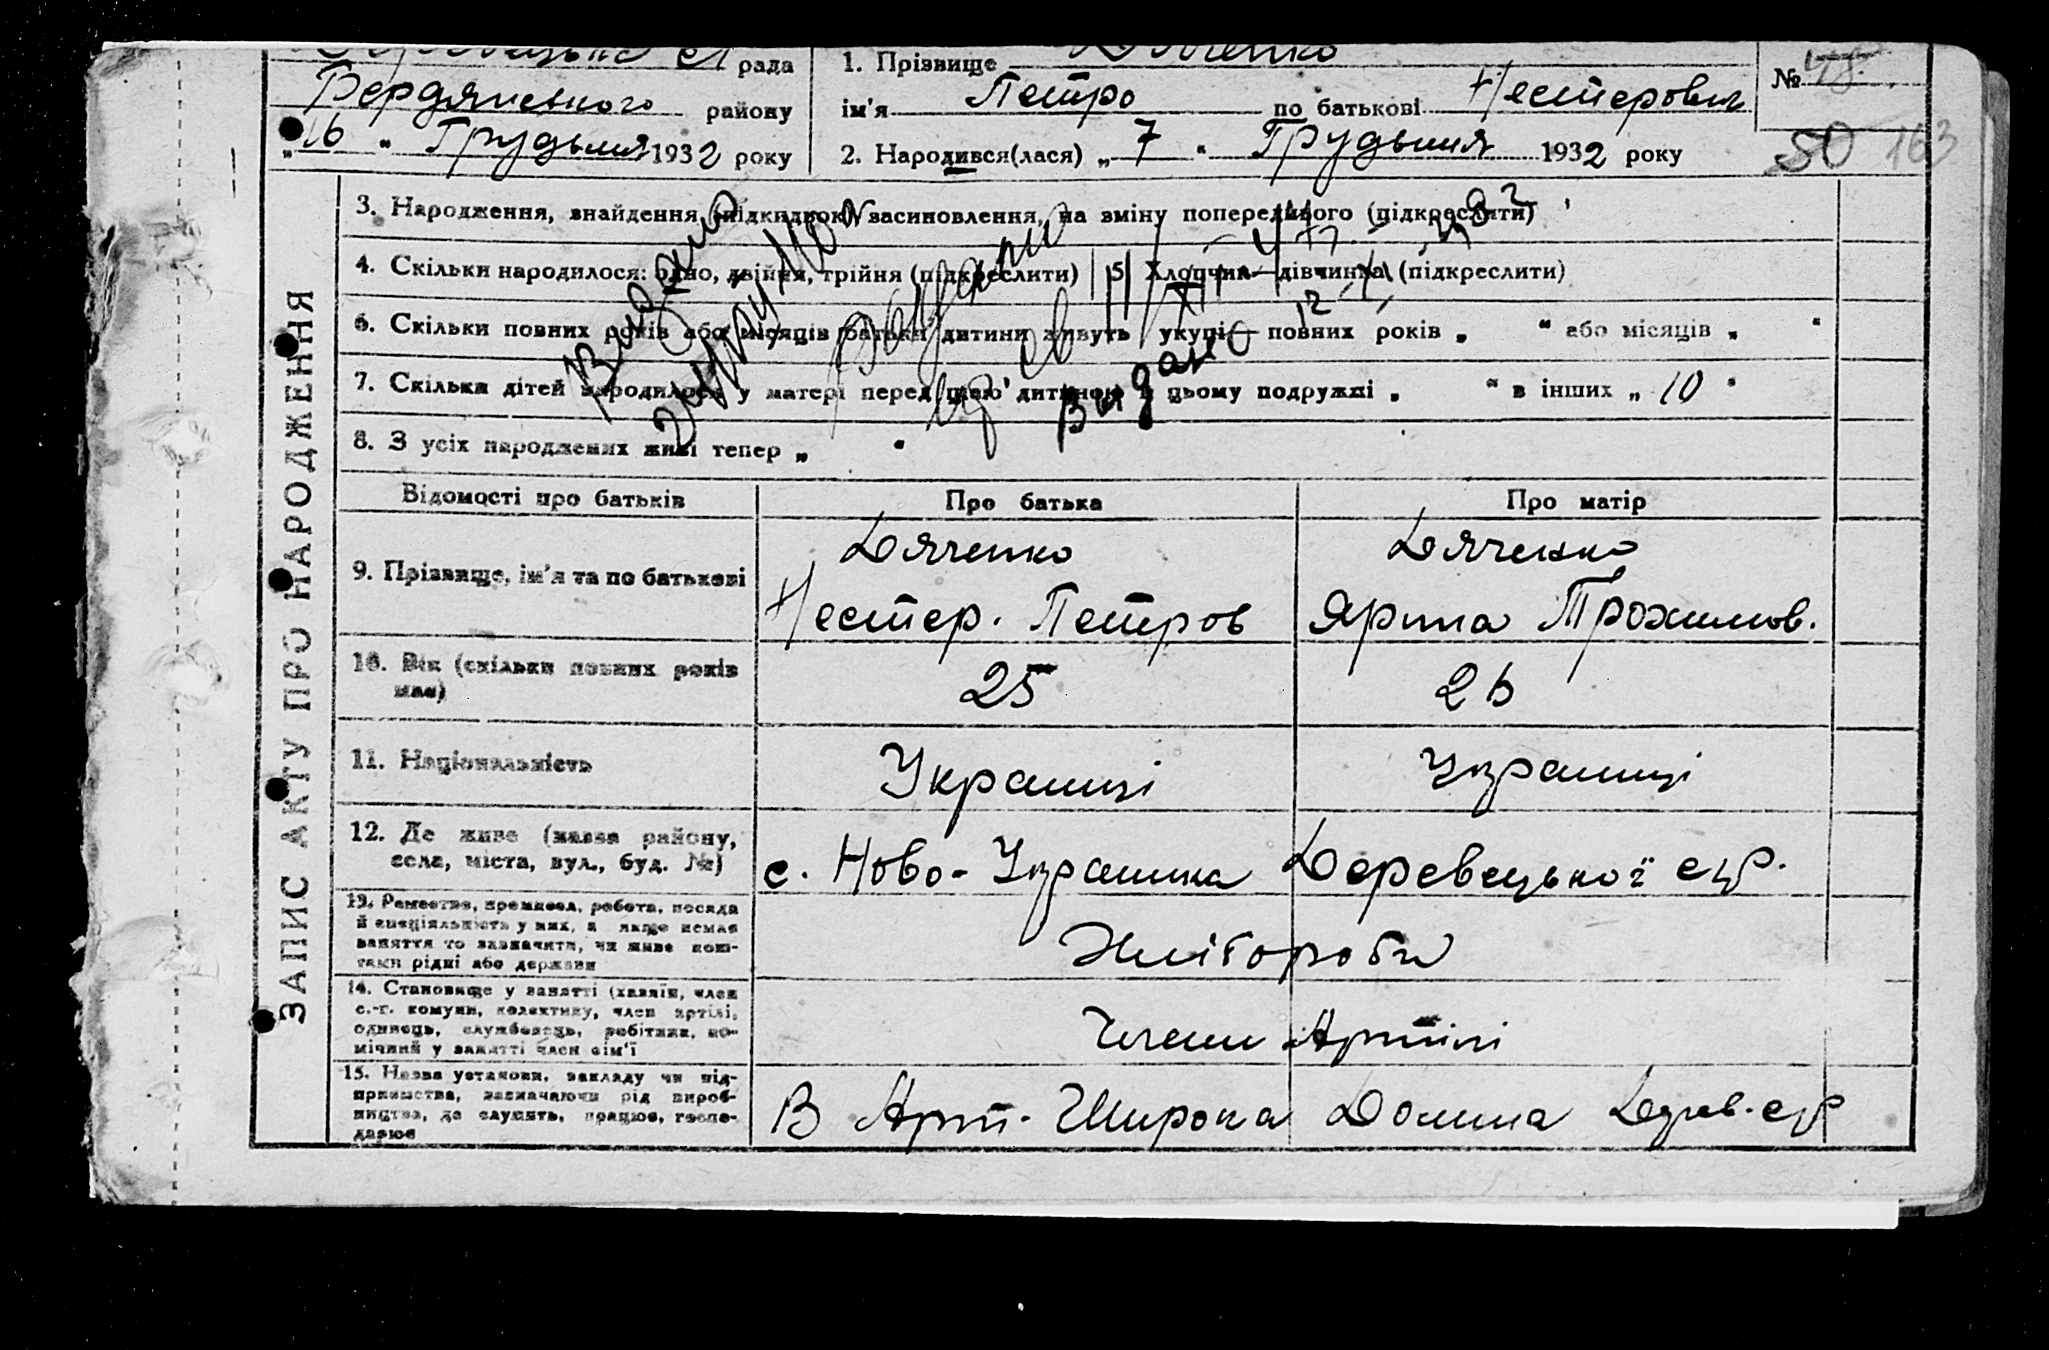 рада 1. Прізвище Дяченко №
Бердянського району ім'я Петро по батькові Нестерович
„16 " Грудьмня 1932 року 2. Народився(лася) „ 7 " Грудьмня 1932 року 50 163
ЗАПИС АКТУ ПРО НАРОДЖЕННЯ
3. Народження, знайдення (підкидьок) засиновлення, на зміну попереднього (підкреслити)
4. Скільки народилося: одно, двійня, трійня (підкреслити) 5. Хлопчик—дівчинка (підкреслити)
6. Скільки повних років або місяців батьки дитини живуть укупі— повних років „ " або місяців „ "
7. Скільки дітей народилося у матері перед цією дитиною в цьому подружжі „ " в інших „ 10 "
8. З усіх народжених живі тепер „ "
Видано
Видано
Відомості про батьків Про батька Про матір
9. Прізвище, ім'я та по батькові
Дяченко Дяченко
Нестер. Петров Ярина Трохимов.
10. Вік (скільки повних років має) 25 26
11. Національність Українці Українці
12. Де живе (назва району, села, міста, вул., буд. №)
с. Ново-Українка Деревецької с/р.
13. Ремество, промисел, робота, посада й спеціяльність у них, а якще немає заняття то зазначити, чи живе коштами рідні або держави
Хлібороби
14. Становище у занятті (хазяїн, член с.-г. комуни, колективу, член артілі, одинець, службовець, робітник, помічний у занятті член сім'ї
Члени Артілі
15. Назва установи, закладу чи підприємства, зазначаючи рід виробництва, де служить, працює, господарює
В Арт. Широка Долина Дерев. с/р